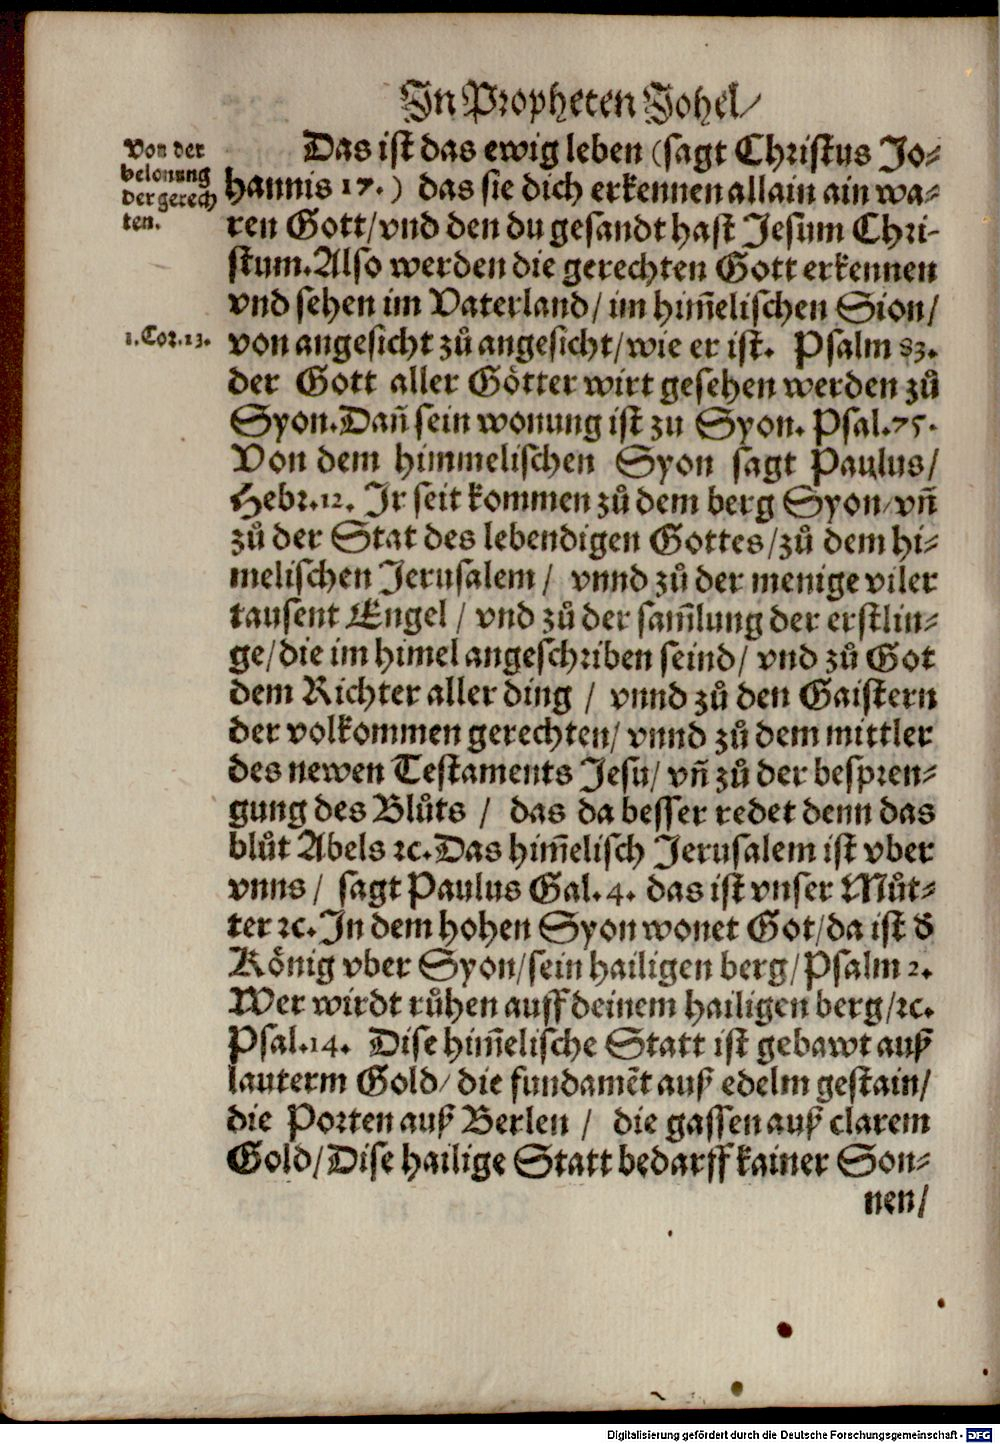 In Propheten Johel/
Von der
belonung
der gerech
ten.
Das ist das ewig leben (sagt Christus Jo-
hannis 17.) das sie dich erkennen allain ain wa-
ren Gott/ vnd den du gesandt hast Jesum Chri-
stum. Also werden die gerechten Gott erkennen
vnd sehen im Vaterland/ im him̄elischen Sion/
1. Cor. 13.
von angesicht zů angesicht/ wie er ist. Psalm 83.
der Gott aller Götter wirt gesehen werden zů
Syon. Dañ sein wonung ist zu Syon. Psal. 75.
Von dem himmelischen Syon sagt Paulus/
Hebr. 12. Jr seit kommen zů dem berg Syon/ vñ
zů der Stat des lebendigen Gottes/ zů dem hi-
melischen Jerusalem/ vnnd zů der menige viler
tausent Engel/ vnd zů der sam̄lung der erstlin-
ge/ die im himel angeschriben seind/ vnd zů Got
dem Richter aller ding/ vnnd zů den Gaistern
der volkommen gerechten/ vnnd zů dem mittler
des newen Testaments Jesu/ vñ zů der bespren-
gung des Blůts/ das da besser redet denn das
blůt Abels ꝛc. Das him̄elisch Jerusalem ist vber
vnns/ sagt Paulus Gal. 4. das ist vnser Můt-
ter ꝛc. In dem hohen Syon wonet Got/ da ist d̄
König vber Syon/ sein hailigen berg/ Psalm 2.
Wer wirdt růhen auff deinem hailigen berg/ ꝛc.
Psal. 14. Dise him̄elische Statt ist gebawt auß
lauterm Gold/ die fundamēt auß edelm gestain/
die Porten auß Berlen/ die gassen auß clarem
Gold/ Dise hailige Statt bedarff kainer Son-
nen/
Digitalisierung gefördert durch die Deutsche Forschungsgemeinschaft - DFG